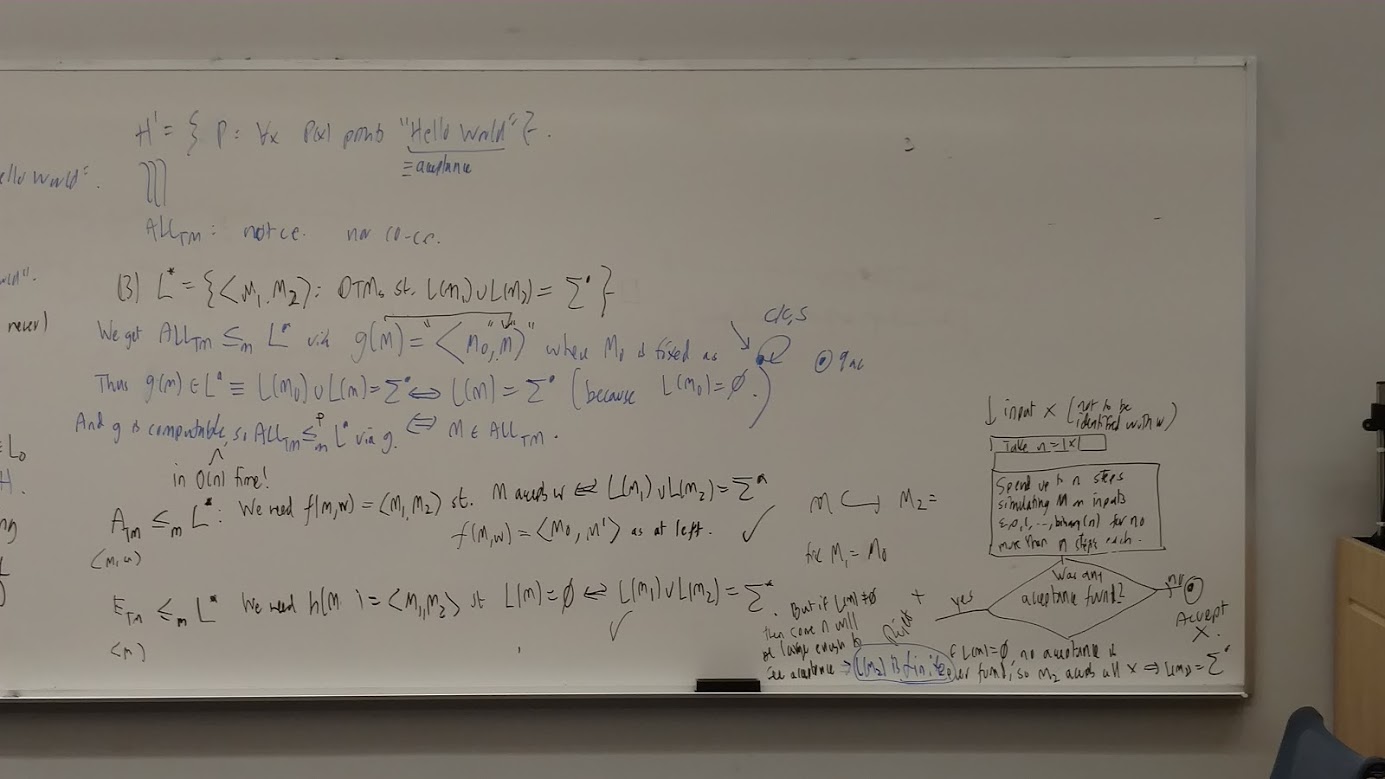 H' = { P : ∀x P(x) prints "Hello World" }.
≡ acceptance
ello World".
ALL_TM : not c.e. nor co-c.e.
World".
(3) L* = {<M₁, M₂> : DTMs st. L(M₁) ∪ L(M₂) = Σ* }
never)
We get ALL_TM ≤_m L* via g(M) = "<M₀, M>" where M₀ is fixed as
c/c, S
q_acc
Thus g(M) ∈ L* ≡ L(M₀) ∪ L(M) = Σ* ⟺ L(M) = Σ* (because L(M₀) = ∅.)
And g is computable, so ALL_TM ≤_m^p L* via g. ⟺ M ∈ ALL_TM.
in O(n) time!
A_TM ≤_m L* : We need f(M,w) = <M₁, M₂> st. M accepts w ⟺ L(M₁) ∪ L(M₂) = Σ*
<M, w>
f(M,w) = <M₀, M'> as at left. ✓
E_TM ≤_m L* We need h(M) = <M₁, M₂> st L(M) = ∅ ⟺ L(M₁) ∪ L(M₂) = Σ*
<M>
✓
M ↪ M₂ =
fix M₁ = M₀
↓ input x (not to be
identified with w)
Take n = |x|
Spend up to n steps
simulating M on inputs
ε, 0, 1, ..., binary(n) for no
more than n steps each.
Was any
acceptance found?
yes
no
Reject x
Accept
x.
But if L(M) ≠ ∅
then some n will
be large enough to
see acceptance ⇒ L(M₂) is finite
If L(M) = ∅, no acceptance is
ever found, so M₂ accepts all x ⇒ L(M₂) = Σ*